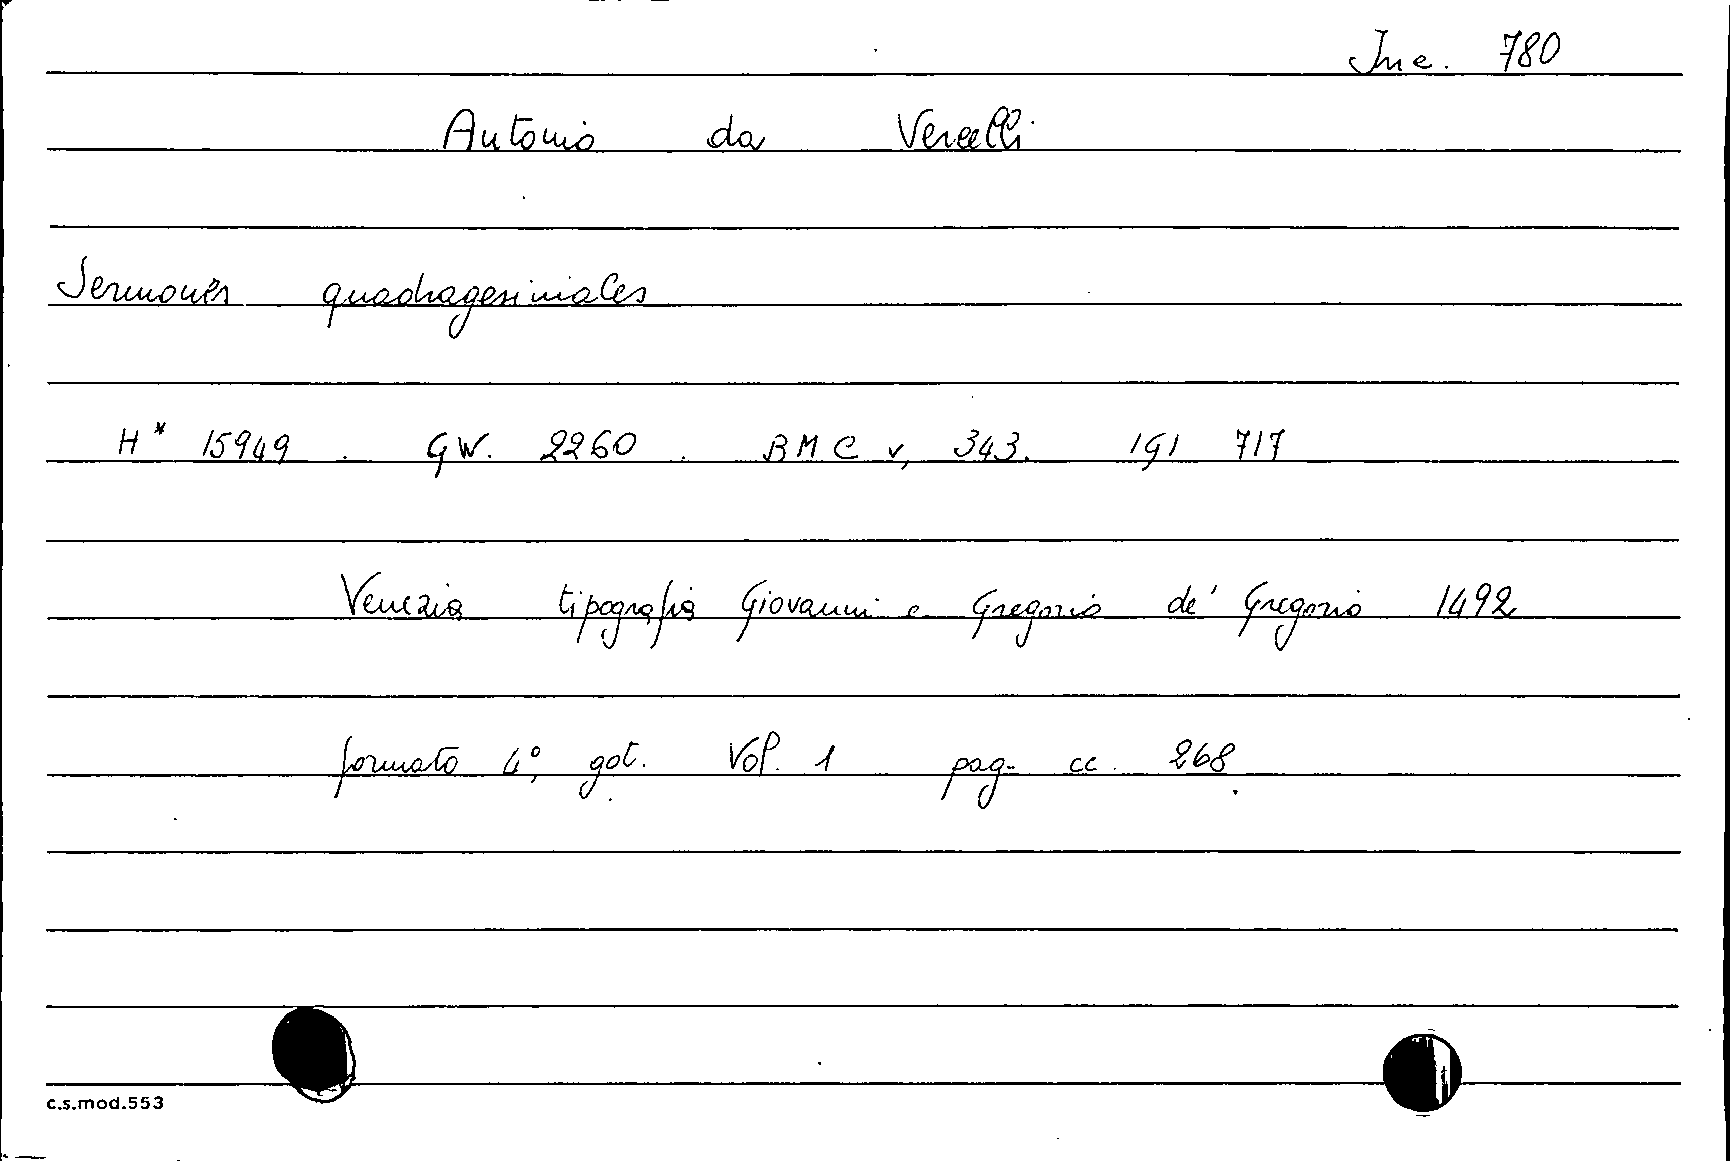 Inc. 780
Antonio da Vercelli
Sermones quadragesimales
H* 15949. GW. 2260. BMC V, 343. IGI 717
Venezia tipografia Giovanni e Gregorio de' Gregorio 1492
formato 4°, got. Vol. 1 pag. cc. 268.
c.s.mod.553